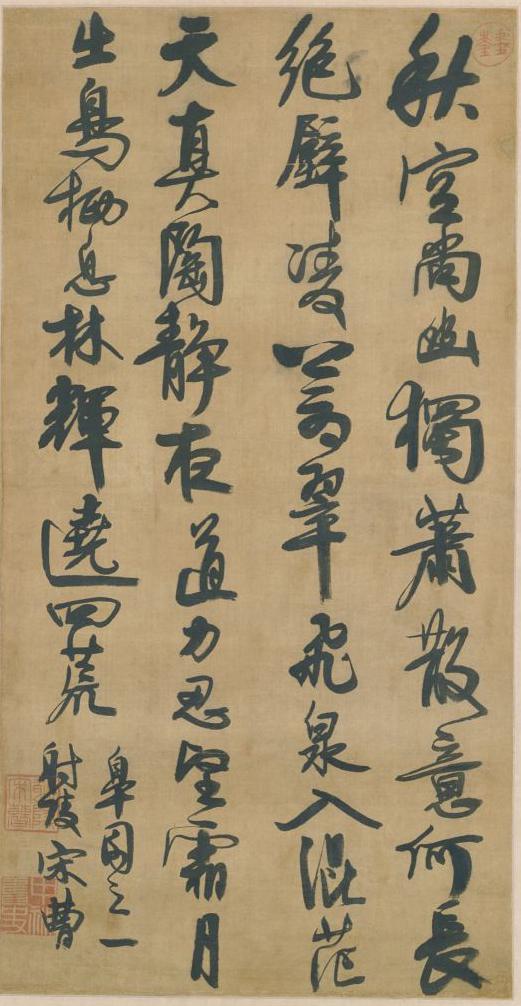 秋空尚幽獨蕭散意何長
絕壁凌蒼翠飛泉入混茫
天真陶靜夜道力忍星霜月
出鳥栖息林輝遶四荒
皋園之一
射陵宋曹